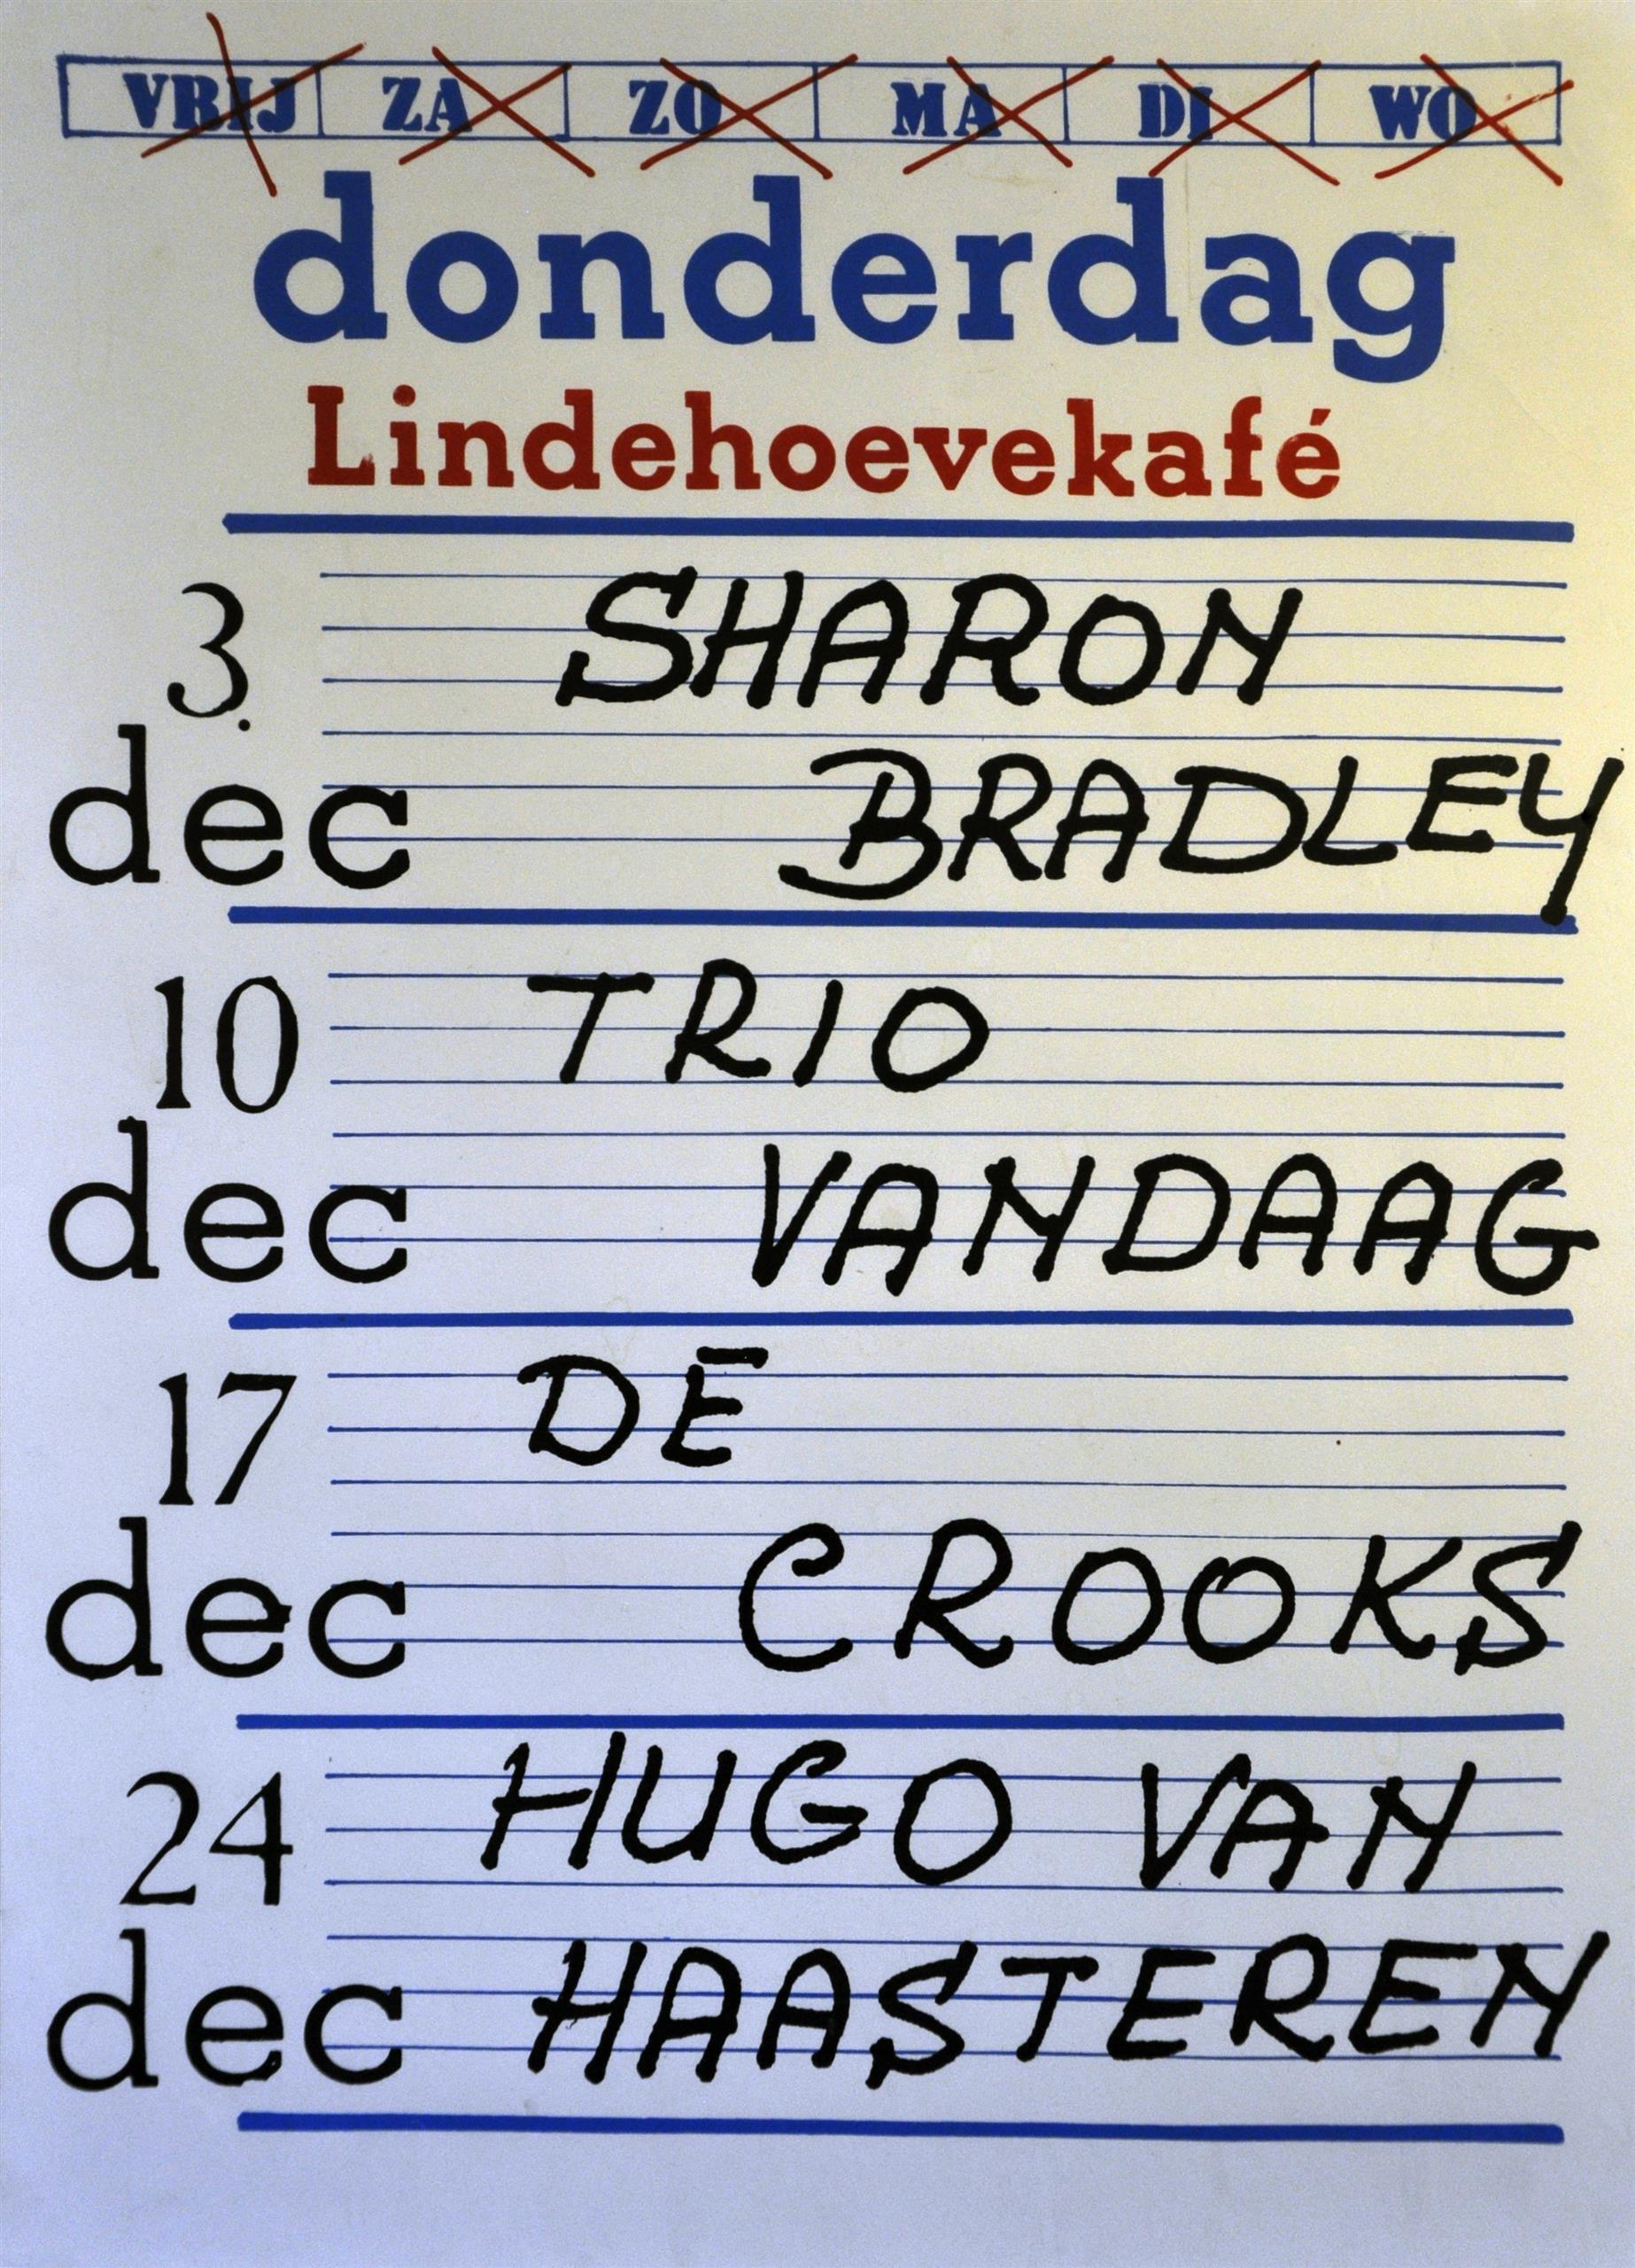 VRIJ ZA ZO MA DI WO
donderdag
Lindehoevekafé
3 SHARON
dec BRADLEY
10 TRIO
dec VANDAAG
17 DE
dec CROOKS
24 HUGO VAN
dec HAASTEREN